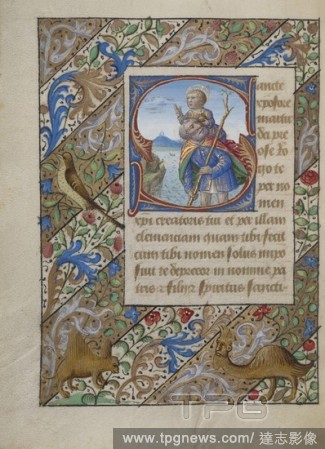 Sancte
xpofore
martir
dei pre
ose Ro
go te
per no
men
xpi creatoris tui et per illam
clemenciam quam tibi fecit
cum tibi nomen solus impo
suit te deprecor in nomine pa
tris & filij spiritus sancti
TPG
www.tpgnews.com / 達志影像